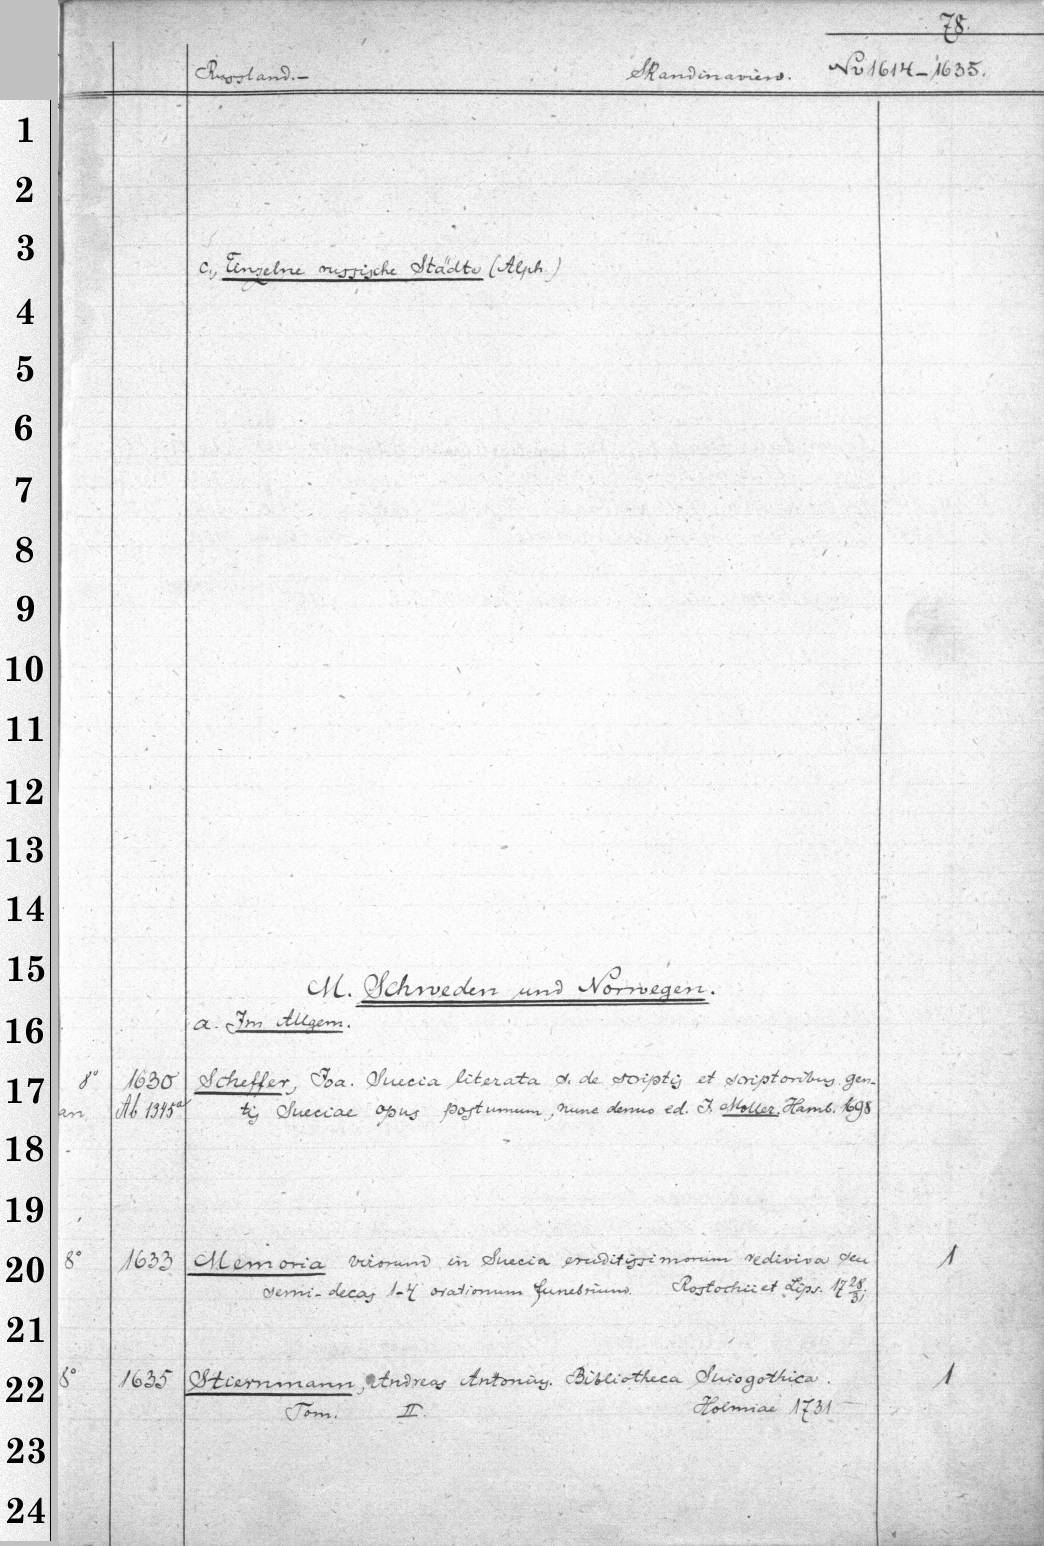 78.
Russland.— Skandinavien. No 1614-1635.
1
2
3
c., Einzelne russische Städte (Alph.)
4
5
6
7
8
9
10
11
12
13
14
15
M. Schweden und Norwegen.
16
a. Im Allgem.
17
8° 1630 Scheffer, Joa. Suecia literata s. de scriptis et scriptoribus gen-
an Ab 1345a tis Sueciae opus postumum, nunc denuo ed. J. Moller. Hamb. 698
18
19
20
8° 1633 Memoria virorum in Suecia eruditissimorum rediviva seu 1
semi-decas 1-4 orationum funebrium. Rostochii et Lips. 17 28/31.
21
22
8° 1635 Stiernmann, Andreas Antonius. Bibliotheca Suiogothica. 1
Tom. II. Holmiae 1731
23
24